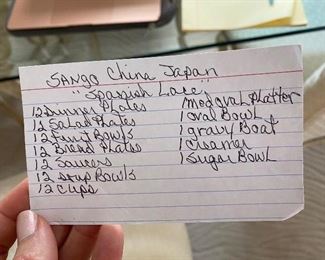 SANGO China Japan
"Spanish Lace"
12 Dinner Plates
12 Salad Plates
12 Fruit Bowls
12 Bread Plates
12 Saucers
12 Soup Bowls
12 Cups
1 med oval Platter
1 oval Bowl
1 gravy Boat
1 Creamer
1 Sugar Bowl